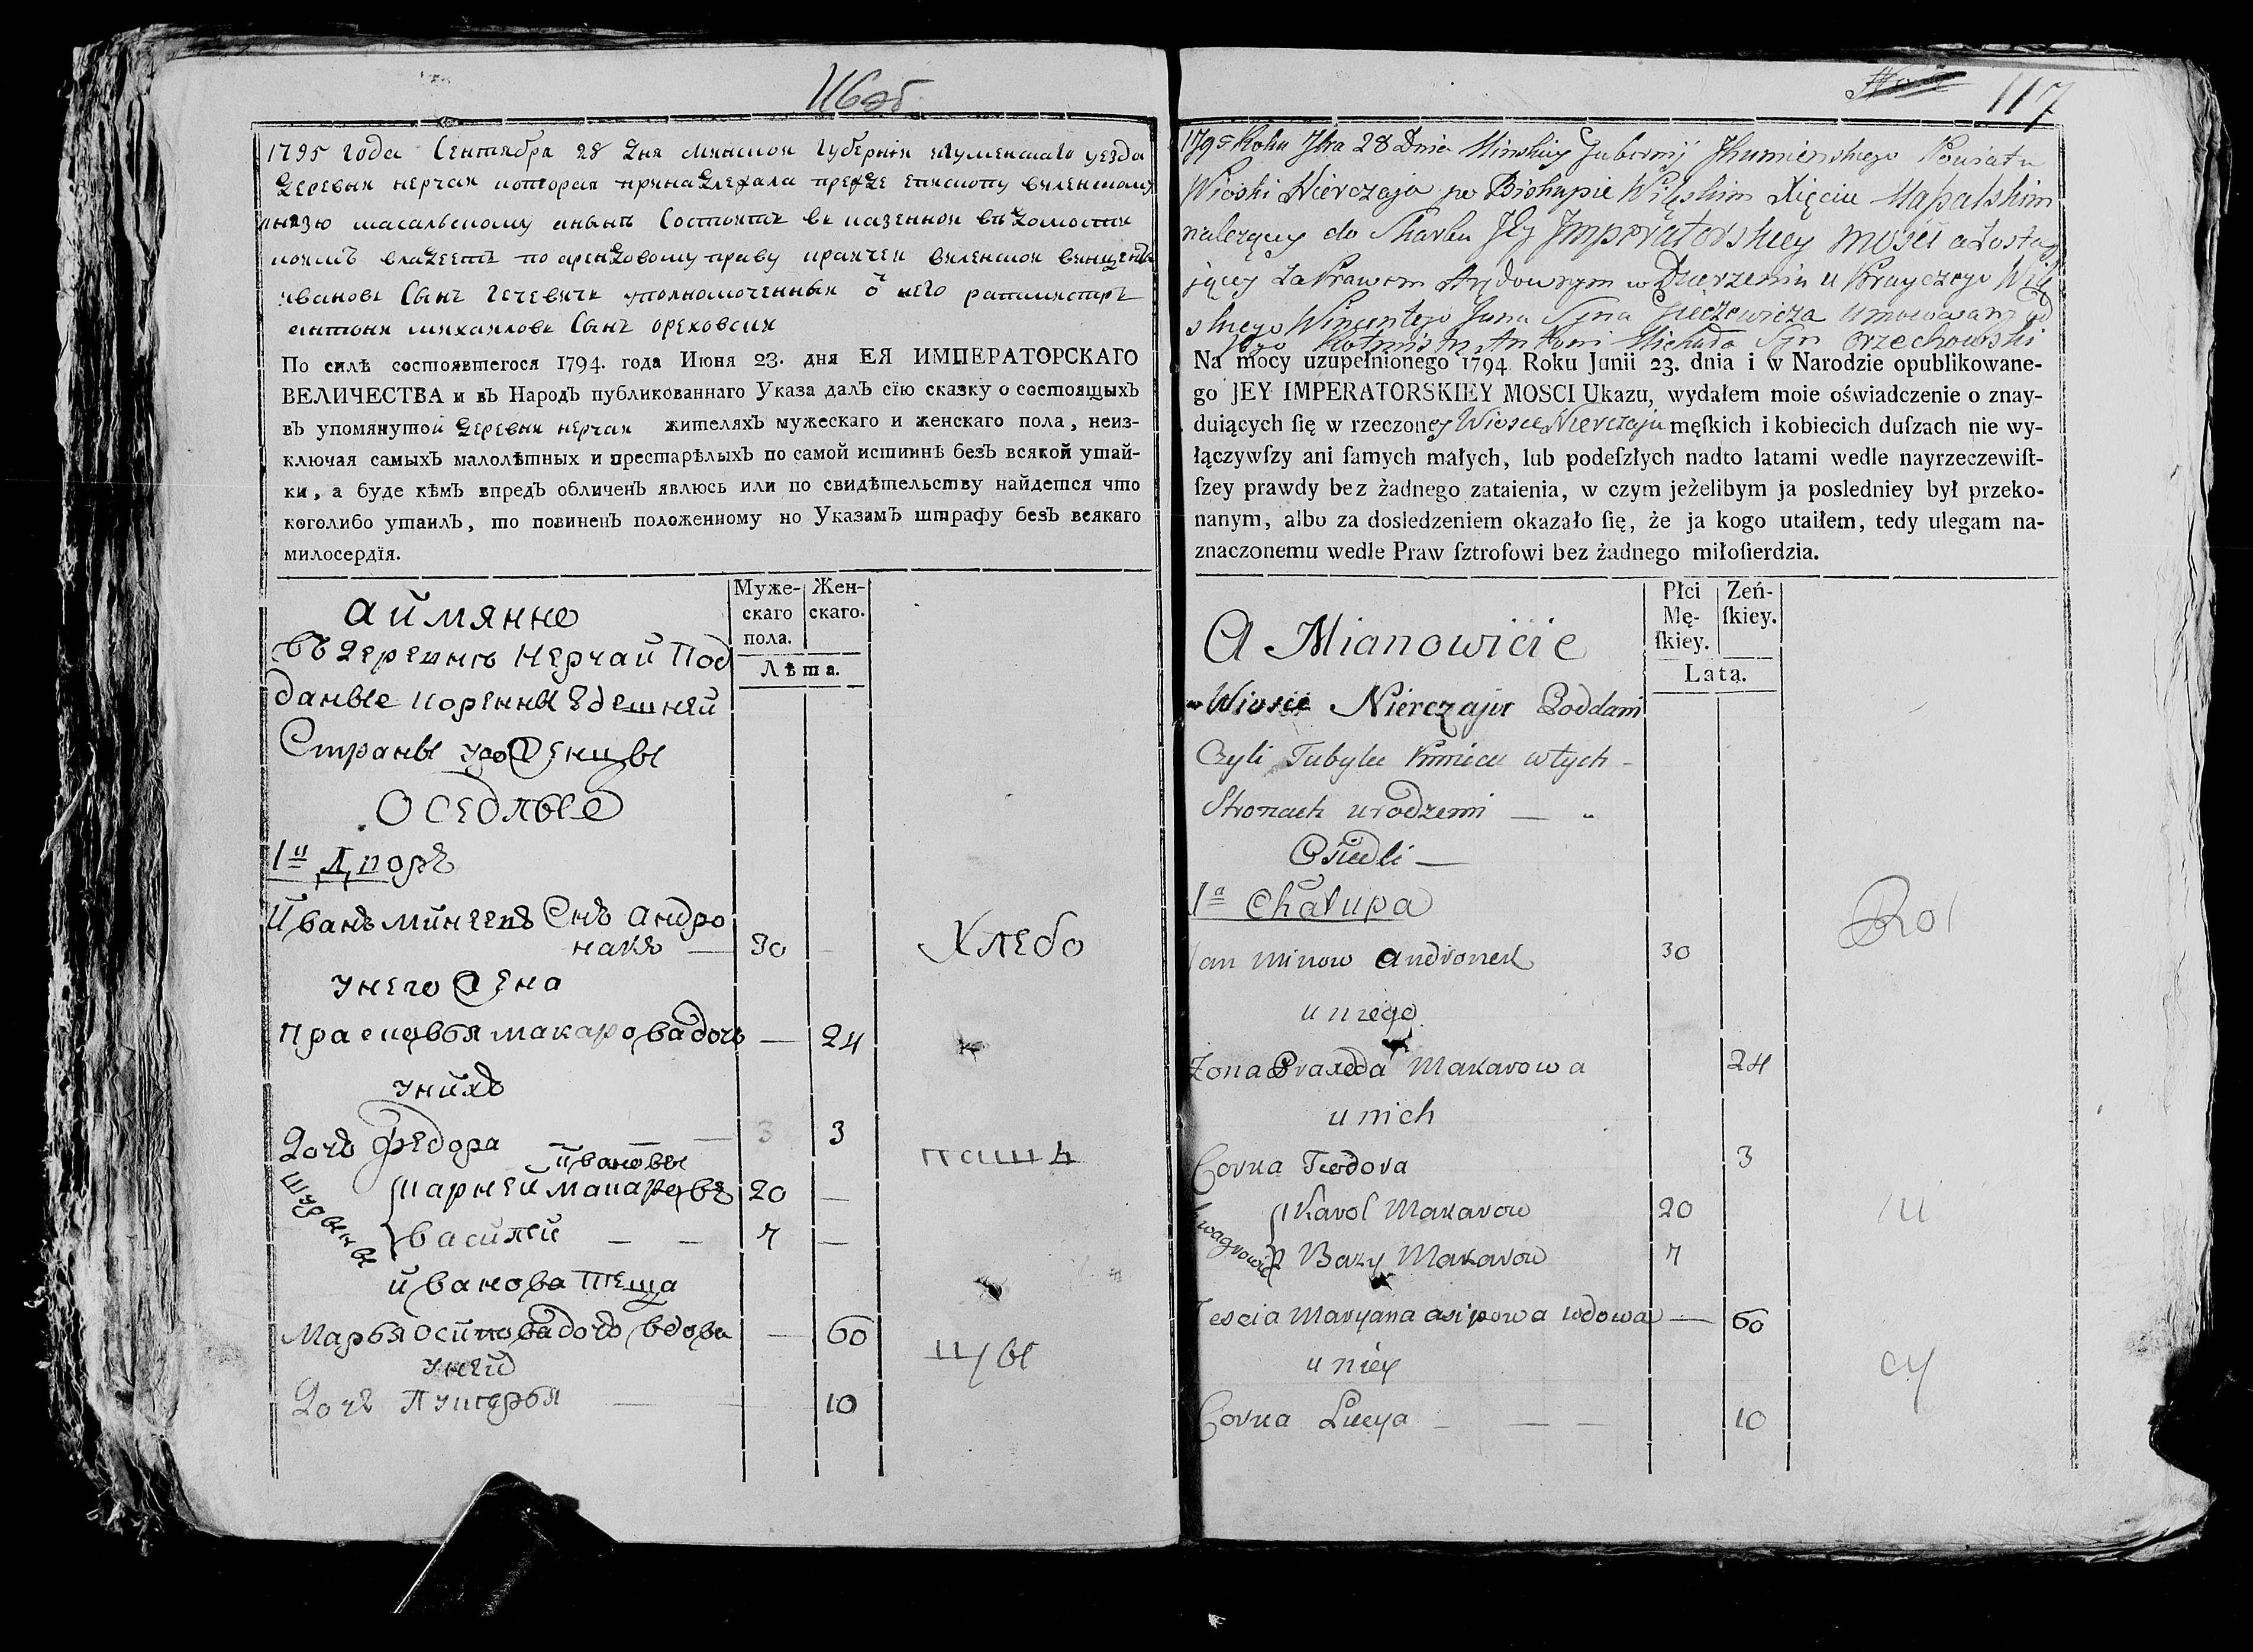 116 об
1795 года Сентября 28 дня минской губернии игуменскаго уезда
деревни нерчаи которая принадлежала прежде епископу виленскому
князю масальскому а нынѣ состоитъ въ казенной вѣдомости
коимъ владеетъ по арендовому праву крайчей виленской винцентъ
ивановъ сынъ гечевичъ уполномоченный о него ратмистръ
антони михайловъ сынъ ореховски
По силѣ состоявшегося 1794. года Июня 23. дня ЕЯ ИМПЕРАТОРСКАГО
ВЕЛИЧЕСТВА и въ Народъ публикованнаго Указа далъ сїю сказку о состоящыхъ
въ упомянутой деревни нерчаи жителяхъ мужескаго и женскаго пола, неиз-
ключая самыхъ малолѣтныхъ и престарѣлыхъ по самой истиннѣ безъ всякой утай-
ки, а буде кѣмъ впредъ обличенъ явлюсь или по свидѣтельству найдется что
коголибо утаилъ, то повиненъ положенному по Указамъ штрафу безъ всякаго
милосердїя.
Муже-
скаго
пола.
Жен-
скаго.
Лѣта.
а иймянно
въ деревнѣ Нерчаи Под
даные коренны Здешней
Страны уроженцы
Оседлые
1й Дворъ
Иванъ минеевъ Снъ андро
накъ — 30 —
Хлебо
у него жена
прасковья макарова дочь — 24
у нихъ
Дочь Федора Ивановы — 3 3
паш
Шурьевы
карней макаровъ 20 —
василей — — 7 —
иванова теща
Марья осипова дочь вдова — 60
цы
у ней
Дочь Лукерья — 10
117
1795 Roku 7bra 28 Dnia Minskiey Gubernij Jhumienskiego Powiatu
Wioski Nierczaja po Biskupie Wileńskim Xięciu Massalskim
należącey do Skarbu Jey Imperatorskiey Mości a zosta
jącey za Prawem Arędownym w Dzierzeniu u Krayczego Wile
skiego Wincentego Jana Syna Gieczewicza umocowany od
Jego Rotmistrz Antoni Michała Syn Orzechowski
Na mocy uzupełnionego 1794 Roku Junii 23. dnia i w Narodzie opublikowane-
go JEY IMPERATORSKIEY MOSCI Ukazu, wydałem moie oświadczenie o znay-
duiących ſię w rzeczoney Wiosce Nierczaju męſkich i kobiecich duſzach nie wy-
łączywſzy ani ſamych małych, lub podeſzłych nadto latami wedle nayrzeczewiſt-
ſzey prawdy bez żadnego zataienia, w czym jeżelibym ja posledniey był przeko-
nanym, albo za dosledzeniem okazało ſię, że ja kogo utaiłem, tedy ulegam na-
znaczonemu wedle Praw ſztrofowi bez żadnego miłoſierdzia.
Płci
Mę-
ſkiey.
Zeń-
ſkiey.
Lata.
A Mianowicie
w Wiosce Nierczaju Poddani
Czyli Tubylcy Kmiecie w tych
Stronach urodzeni —
Osiedli —
1a Chałupa
Jan Minow Andronek 30
Rol
u niego
Żona Praxeda Makarowa 24
u nich
Corka Teodora 3
Szwagrowie
1 Karol Makarow 20
ni
2 Bazy Makarow 7
Teścia Maryana asipowa wdowa — 60
u niey
cy
Corka Lucya — — — 10